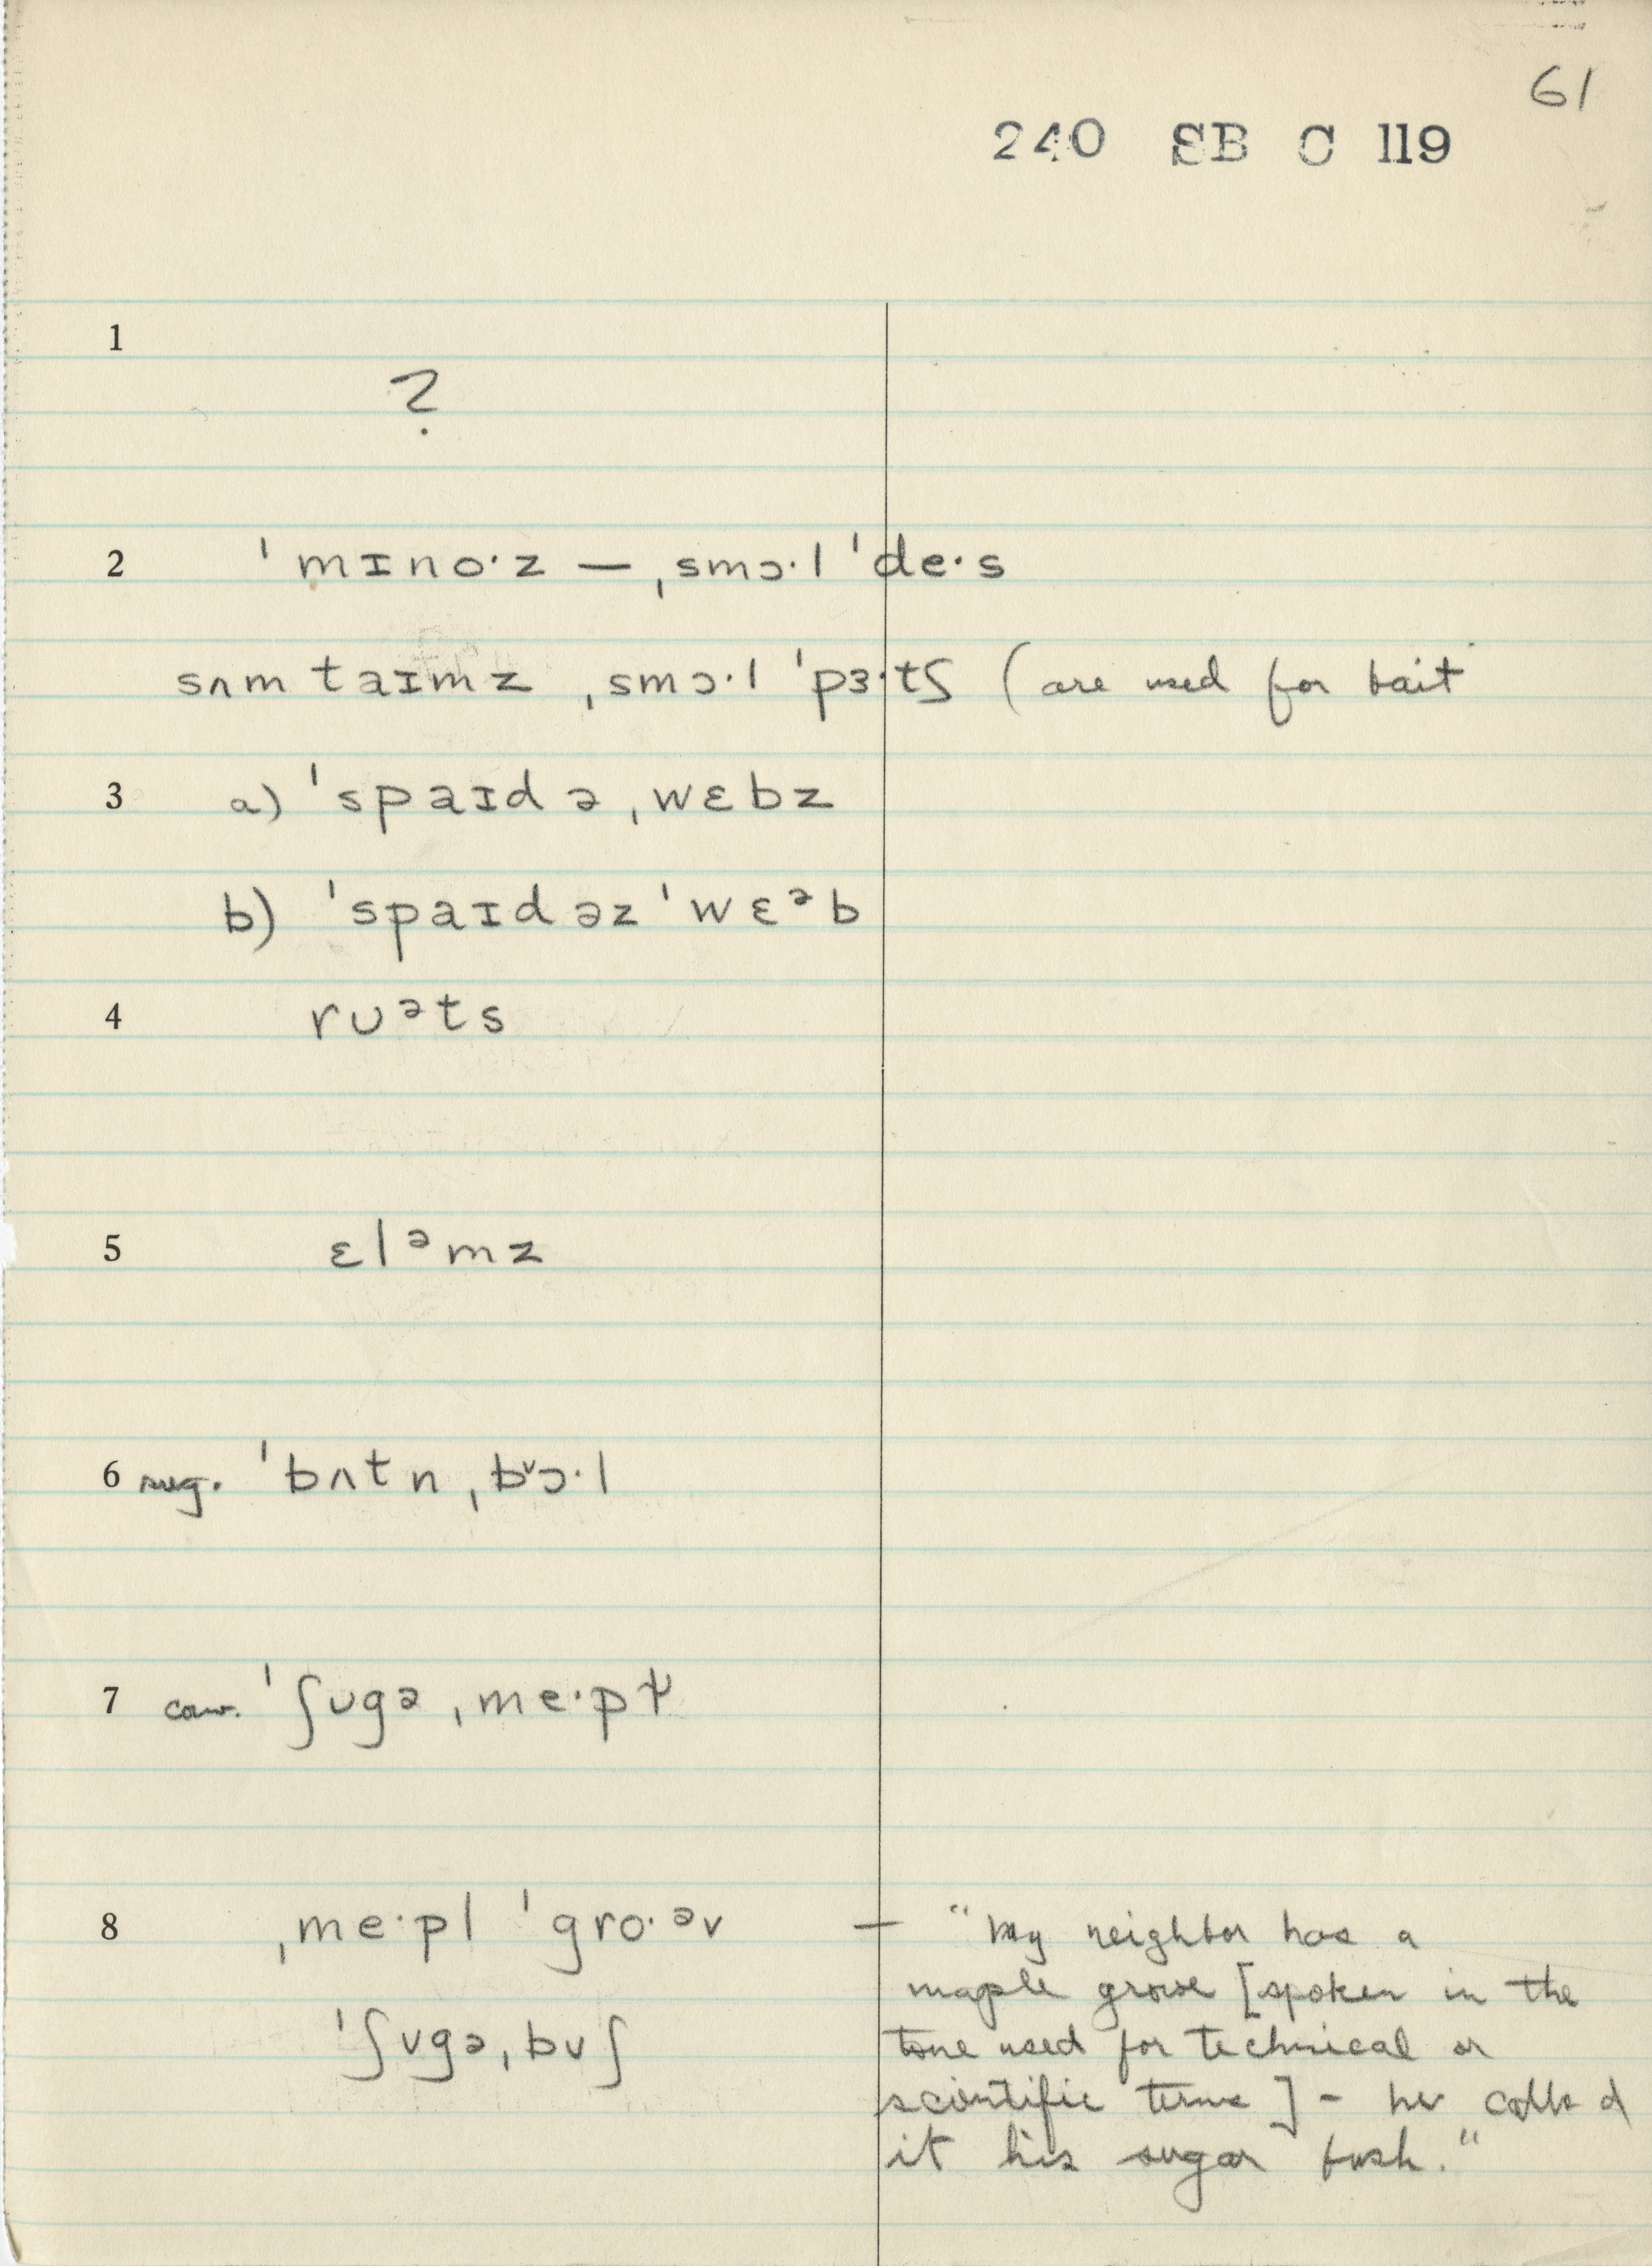 61
240 SB C 119
1
?
2 ˈmɪno·z — ˌsmɔ·l ˈde·s
sʌm taɪmz ˌsmɔ·l ˈpɜ·tʃ (are used for bait
3 a) ˈspaɪdə ˌwɛbz
b) ˈspaɪdəz ˈwɛᵊb
4 rʊᵊts
5 ɛlᵊmz
6 sug. ˈbʌtn ˌbᵛɔ·l
7 cow. ˈʃʊgə ˌme·pɫ
8 ˌme·pl ˈgro·ᵊv — "My neighbor has a
maple grove [spoken in the
ˈʃʊgə ˌbʊʃ tone used for technical or
scientific terms] - he called
it his sugar bush."